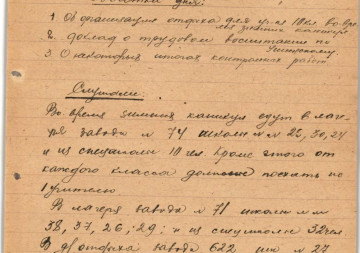 Повестка дня:
1 Об организации отдыха для уч-ся 10кл. во вре
мя зимних каникул
2. доклад о трудовом воспитании по
Ушинскому
3 О некоторых итогах контрольных работ
Слушали:
Во время зимних каникул едут в лаге-
ря завода № 74 школы №№ 22, 30, 24
и из спецшколы 10 чел. Кроме этого от
каждого класса должны поехать по
1 учителю
В лагеря завода № 71 школы №№
38, 37, 26, 29; и из спецшколы 32 чел
В д/отдыха завода 622 шк. № 27